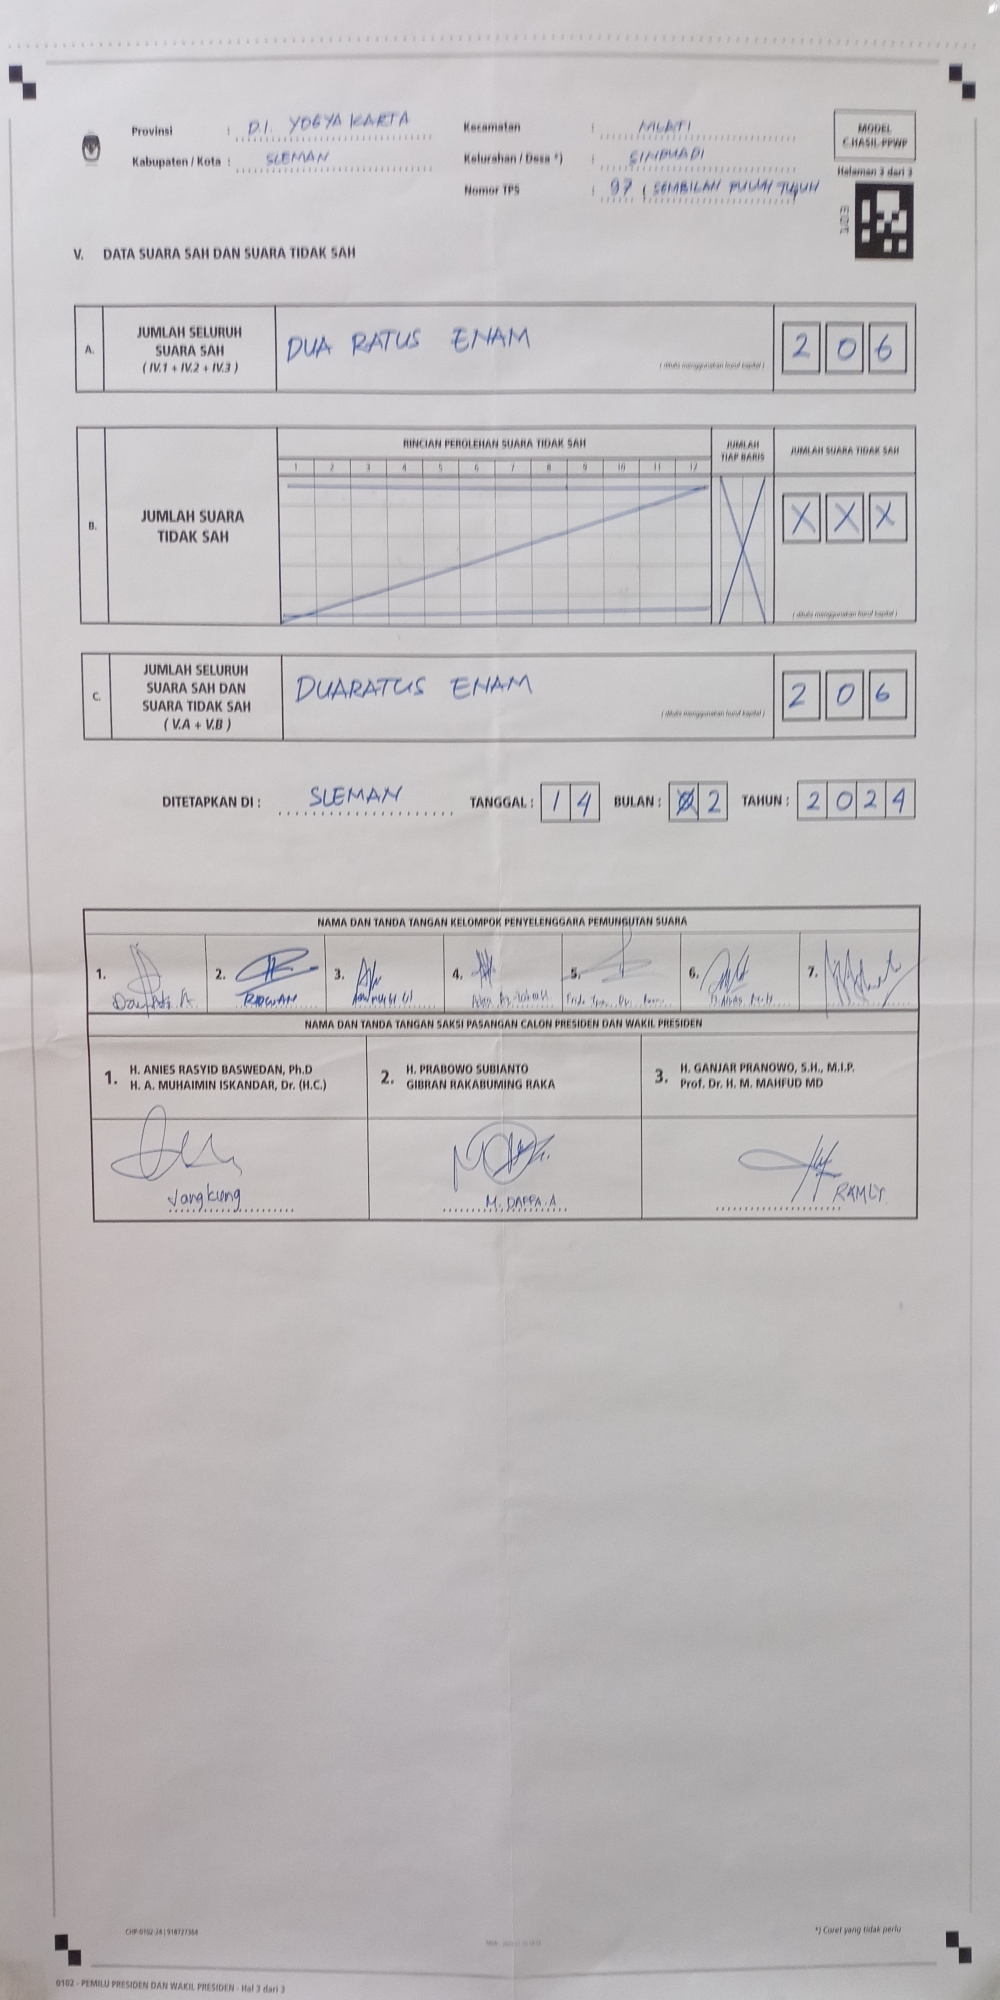 Provinsi : D.I. YOGYAKARTA
Kabupaten / Kota : SLEMAN
Kecamatan : MLATI
Kelurahan / Desa *) : SINDUADI
Nomor TPS : 97 ( SEMBILAN PULUH TUJUH
MODEL
C.HASIL-PPWP
Halaman 3 dari 3
V. DATA SUARA SAH DAN SUARA TIDAK SAH
A. JUMLAH SELURUH
SUARA SAH
( IV.1 + IV.2 + IV.3 )
DUA RATUS ENAM
( ditulis menggunakan huruf kapital )
2 0 6
B. JUMLAH SUARA
TIDAK SAH
RINCIAN PEROLEHAN SUARA TIDAK SAH
1 2 3 4 5 6 7 8 9 10 11 12
JUMLAH
TIAP BARIS
JUMLAH SUARA TIDAK SAH
X X X
( ditulis menggunakan huruf kapital )
C. JUMLAH SELURUH
SUARA SAH DAN
SUARA TIDAK SAH
( V.A + V.B )
DUARATUS ENAM
( ditulis menggunakan huruf kapital )
2 0 6
DITETAPKAN DI : SLEMAN TANGGAL : 1 4 BULAN : 2 TAHUN : 2 0 2 4
NAMA DAN TANDA TANGAN KELOMPOK PENYELENGGARA PEMUNGUTAN SUARA
1. 2. RIDWAN 3. 4. 5. 6. 7.
NAMA DAN TANDA TANGAN SAKSI PASANGAN CALON PRESIDEN DAN WAKIL PRESIDEN
1. H. ANIES RASYID BASWEDAN, Ph.D
H. A. MUHAIMIN ISKANDAR, Dr. (H.C.)
2. H. PRABOWO SUBIANTO
GIBRAN RAKABUMING RAKA
3. H. GANJAR PRANOWO, S.H., M.I.P.
Prof. Dr. H. M. MAHFUD MD
Jangkung
M. DAFFA.A
RAMLY
CHP-0102-34 | 918727364
*) Coret yang tidak perlu
0102 - PEMILU PRESIDEN DAN WAKIL PRESIDEN - Hal 3 dari 3